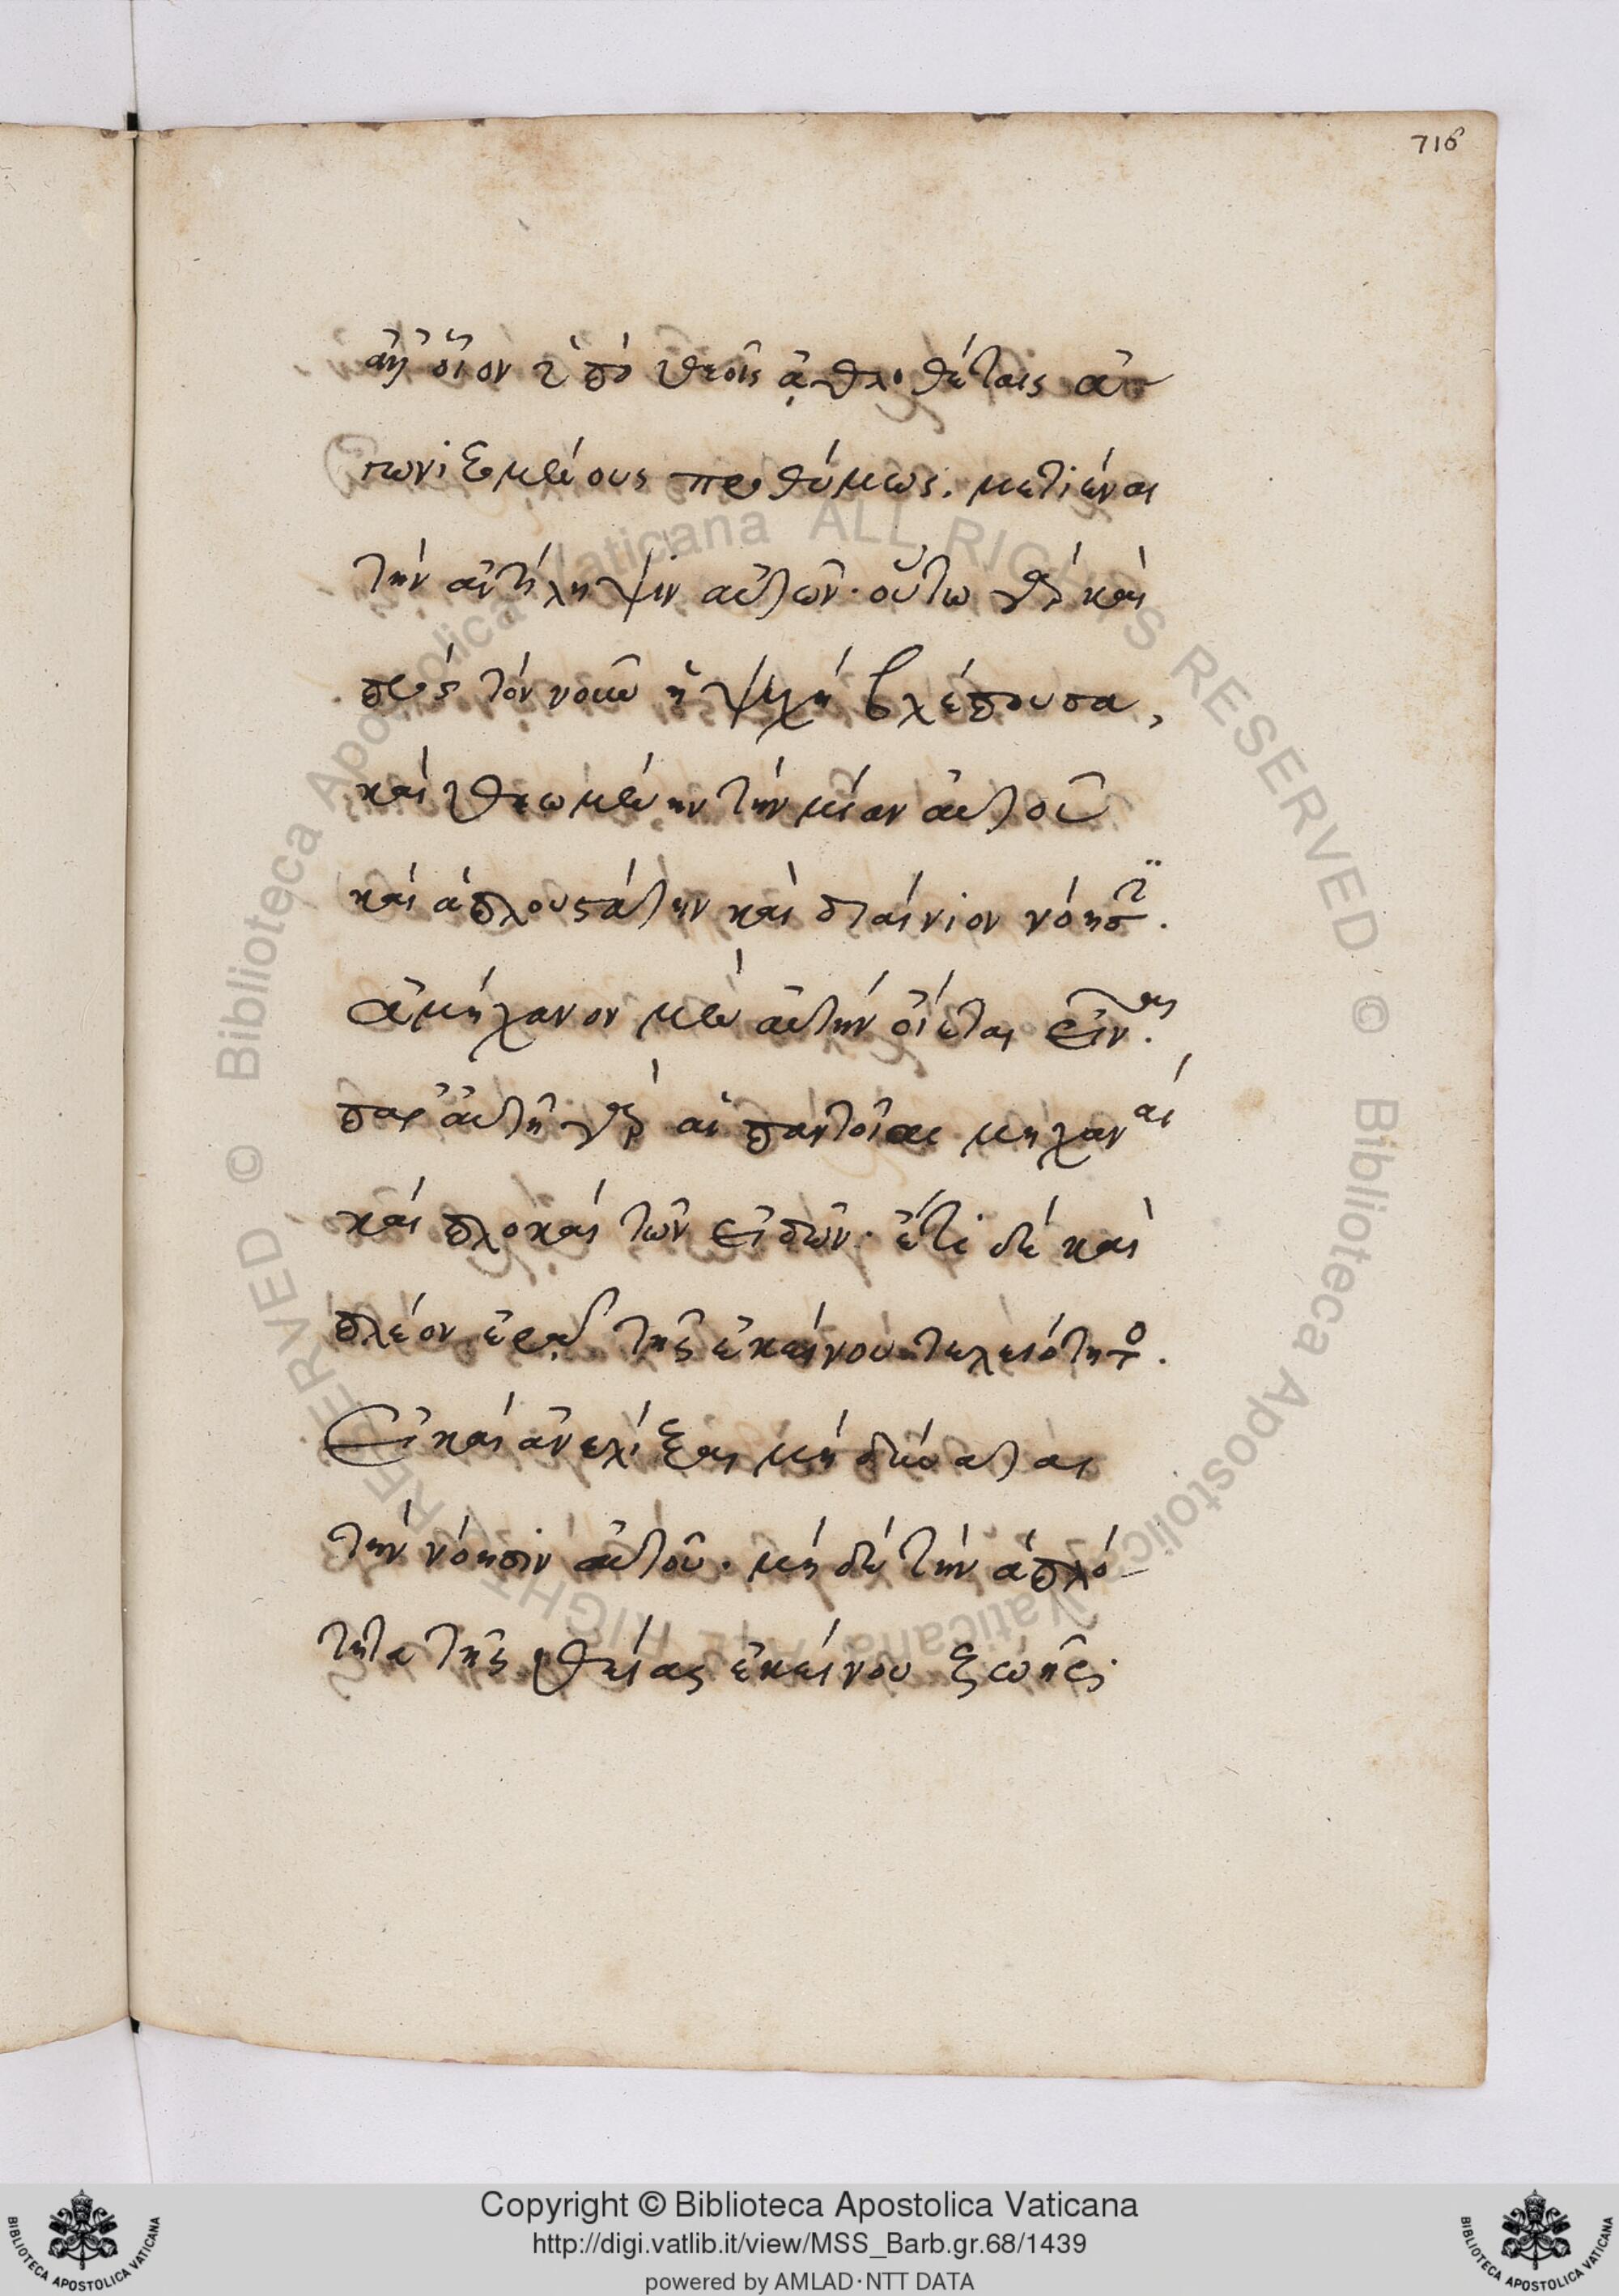 716
οἷον ὑπὸ θεοῖς ἀθλοθέταις ἀ-
γωνιζομένους προθύμως. μετιέναι
τὴν ἀντίληψιν αὐτῶν· οὕτω γὰρ καὶ
πρὸς τὸν νοῦν ἡ ψυχὴ βλέπουσα,
καὶ θεωμένην τὴν μίαν αὐτοῦ
καὶ ἁπλουστάτην καὶ διαιώνιον νόησιν.
ἀμήχανον μὲν αὐτὴν οἴεται εἶναι.
παρ' αὐτῇ γὰρ αἱ παντοῖαι μηχαναὶ
καὶ πλοκαὶ τῶν εἰδῶν· ἔτι δὲ καὶ
πλέον ἐρᾷ τῆς ἐκείνου τελειότητος.
Εἰ καὶ ἀνελίξαι μὴ δύναται
τὴν νόησιν αὐτοῦ. μὴ δὲ τὴν ἁπλό
τητα τῆς θείας ἐκείνου ζωῆς·
© Biblioteca Apostolica Vaticana ALL RIGHTS RESERVED © Biblioteca Apostolica Vaticana ALL RIGHTS RESERVED
Copyright © Biblioteca Apostolica Vaticana
http://digi.vatlib.it/view/MSS_Barb.gr.68/1439
powered by AMLAD·NTT DATA
BIBLIOTECA APOSTOLICA VATICANA
BIBLIOTECA APOSTOLICA VATICANA